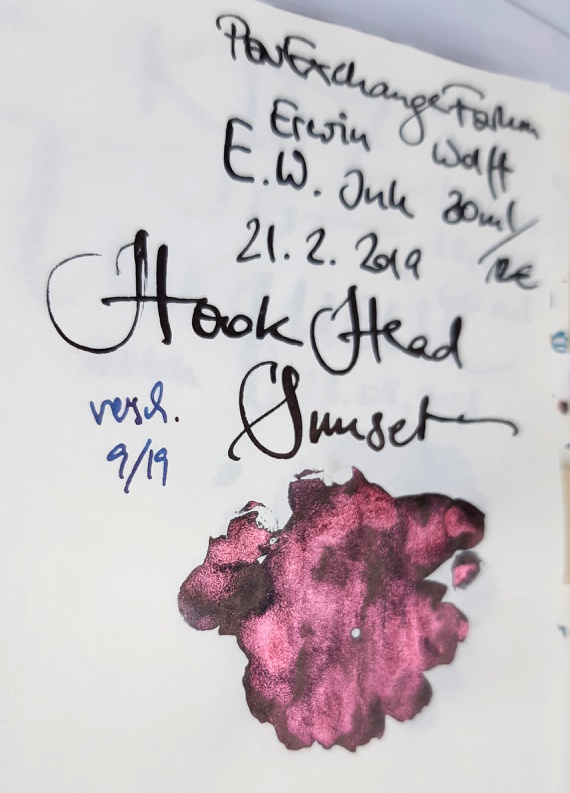 PenExchange Forum
Erwin Wolff
E.W. Ink 30ml/
21.2.2019 12€
Hook Head
Sunset
versch.
9/19